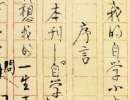 我的自学小
序言
本刊——自学
想我的一生
问